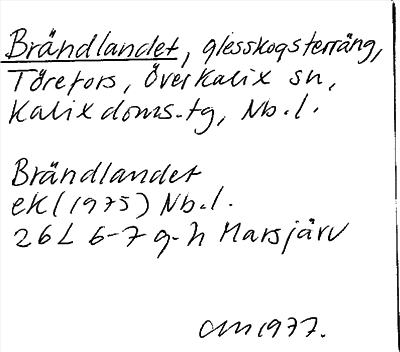 Brändlandet, glesskogsterräng,
Törefors, Överkalix sn,
Kalix doms.tg, Nb.l.
Brändlandet
ek (1975) Nb.l.
26L 6-7 g-h Marsjärv
CM 1977.